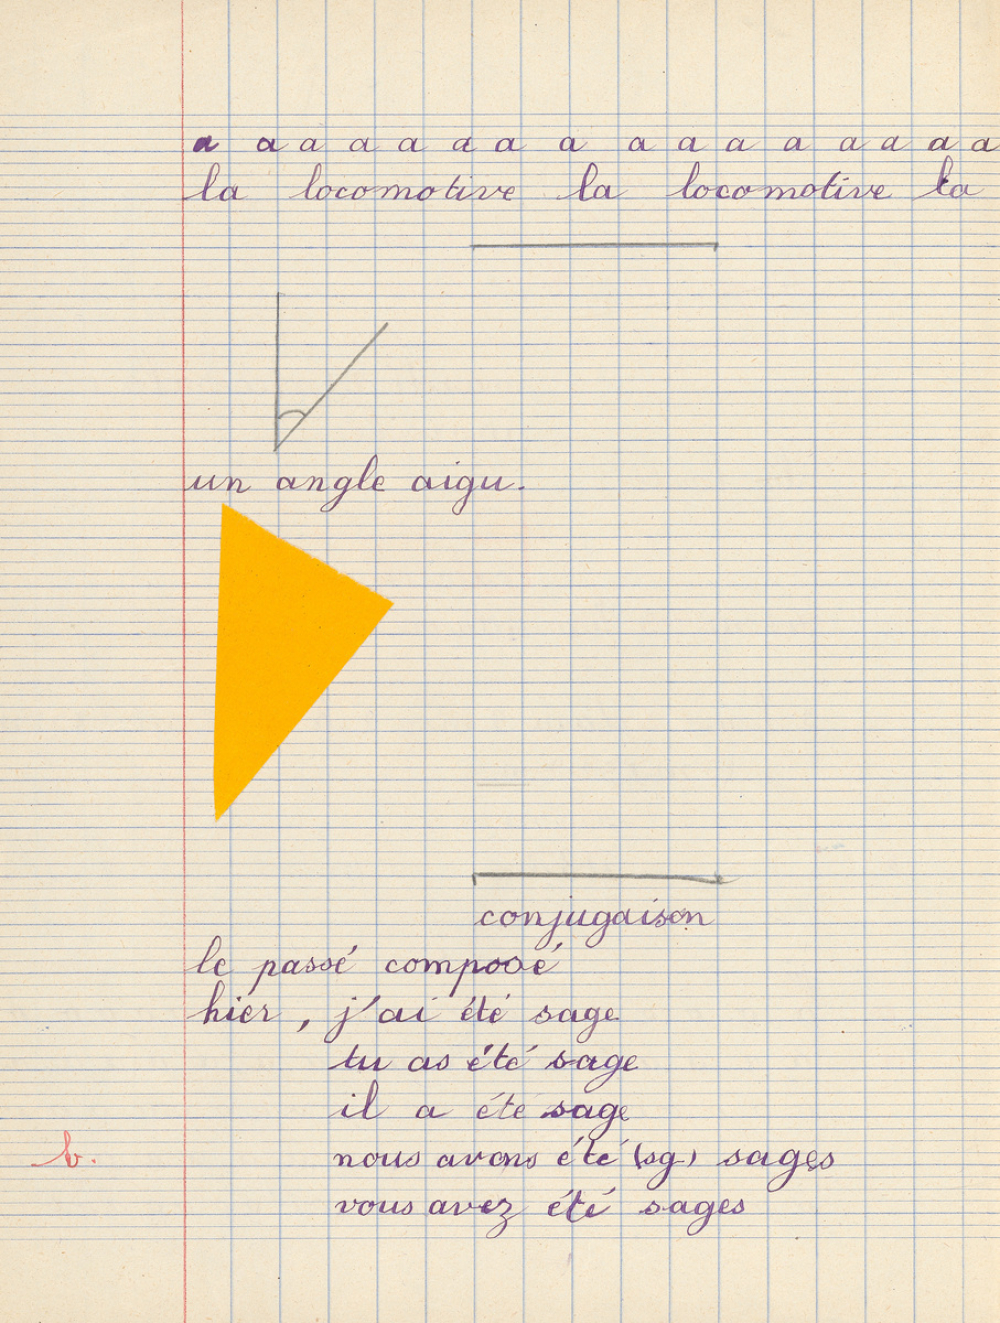 a a a a a a a a a a a a a a a a
la locomotive la locomotive la
un angle aigu.
conjugaison
le passé composé
hier, j'ai été sage
tu as été sage
il a été sage
b. nous avons été (sg) sages
vous avez été sages